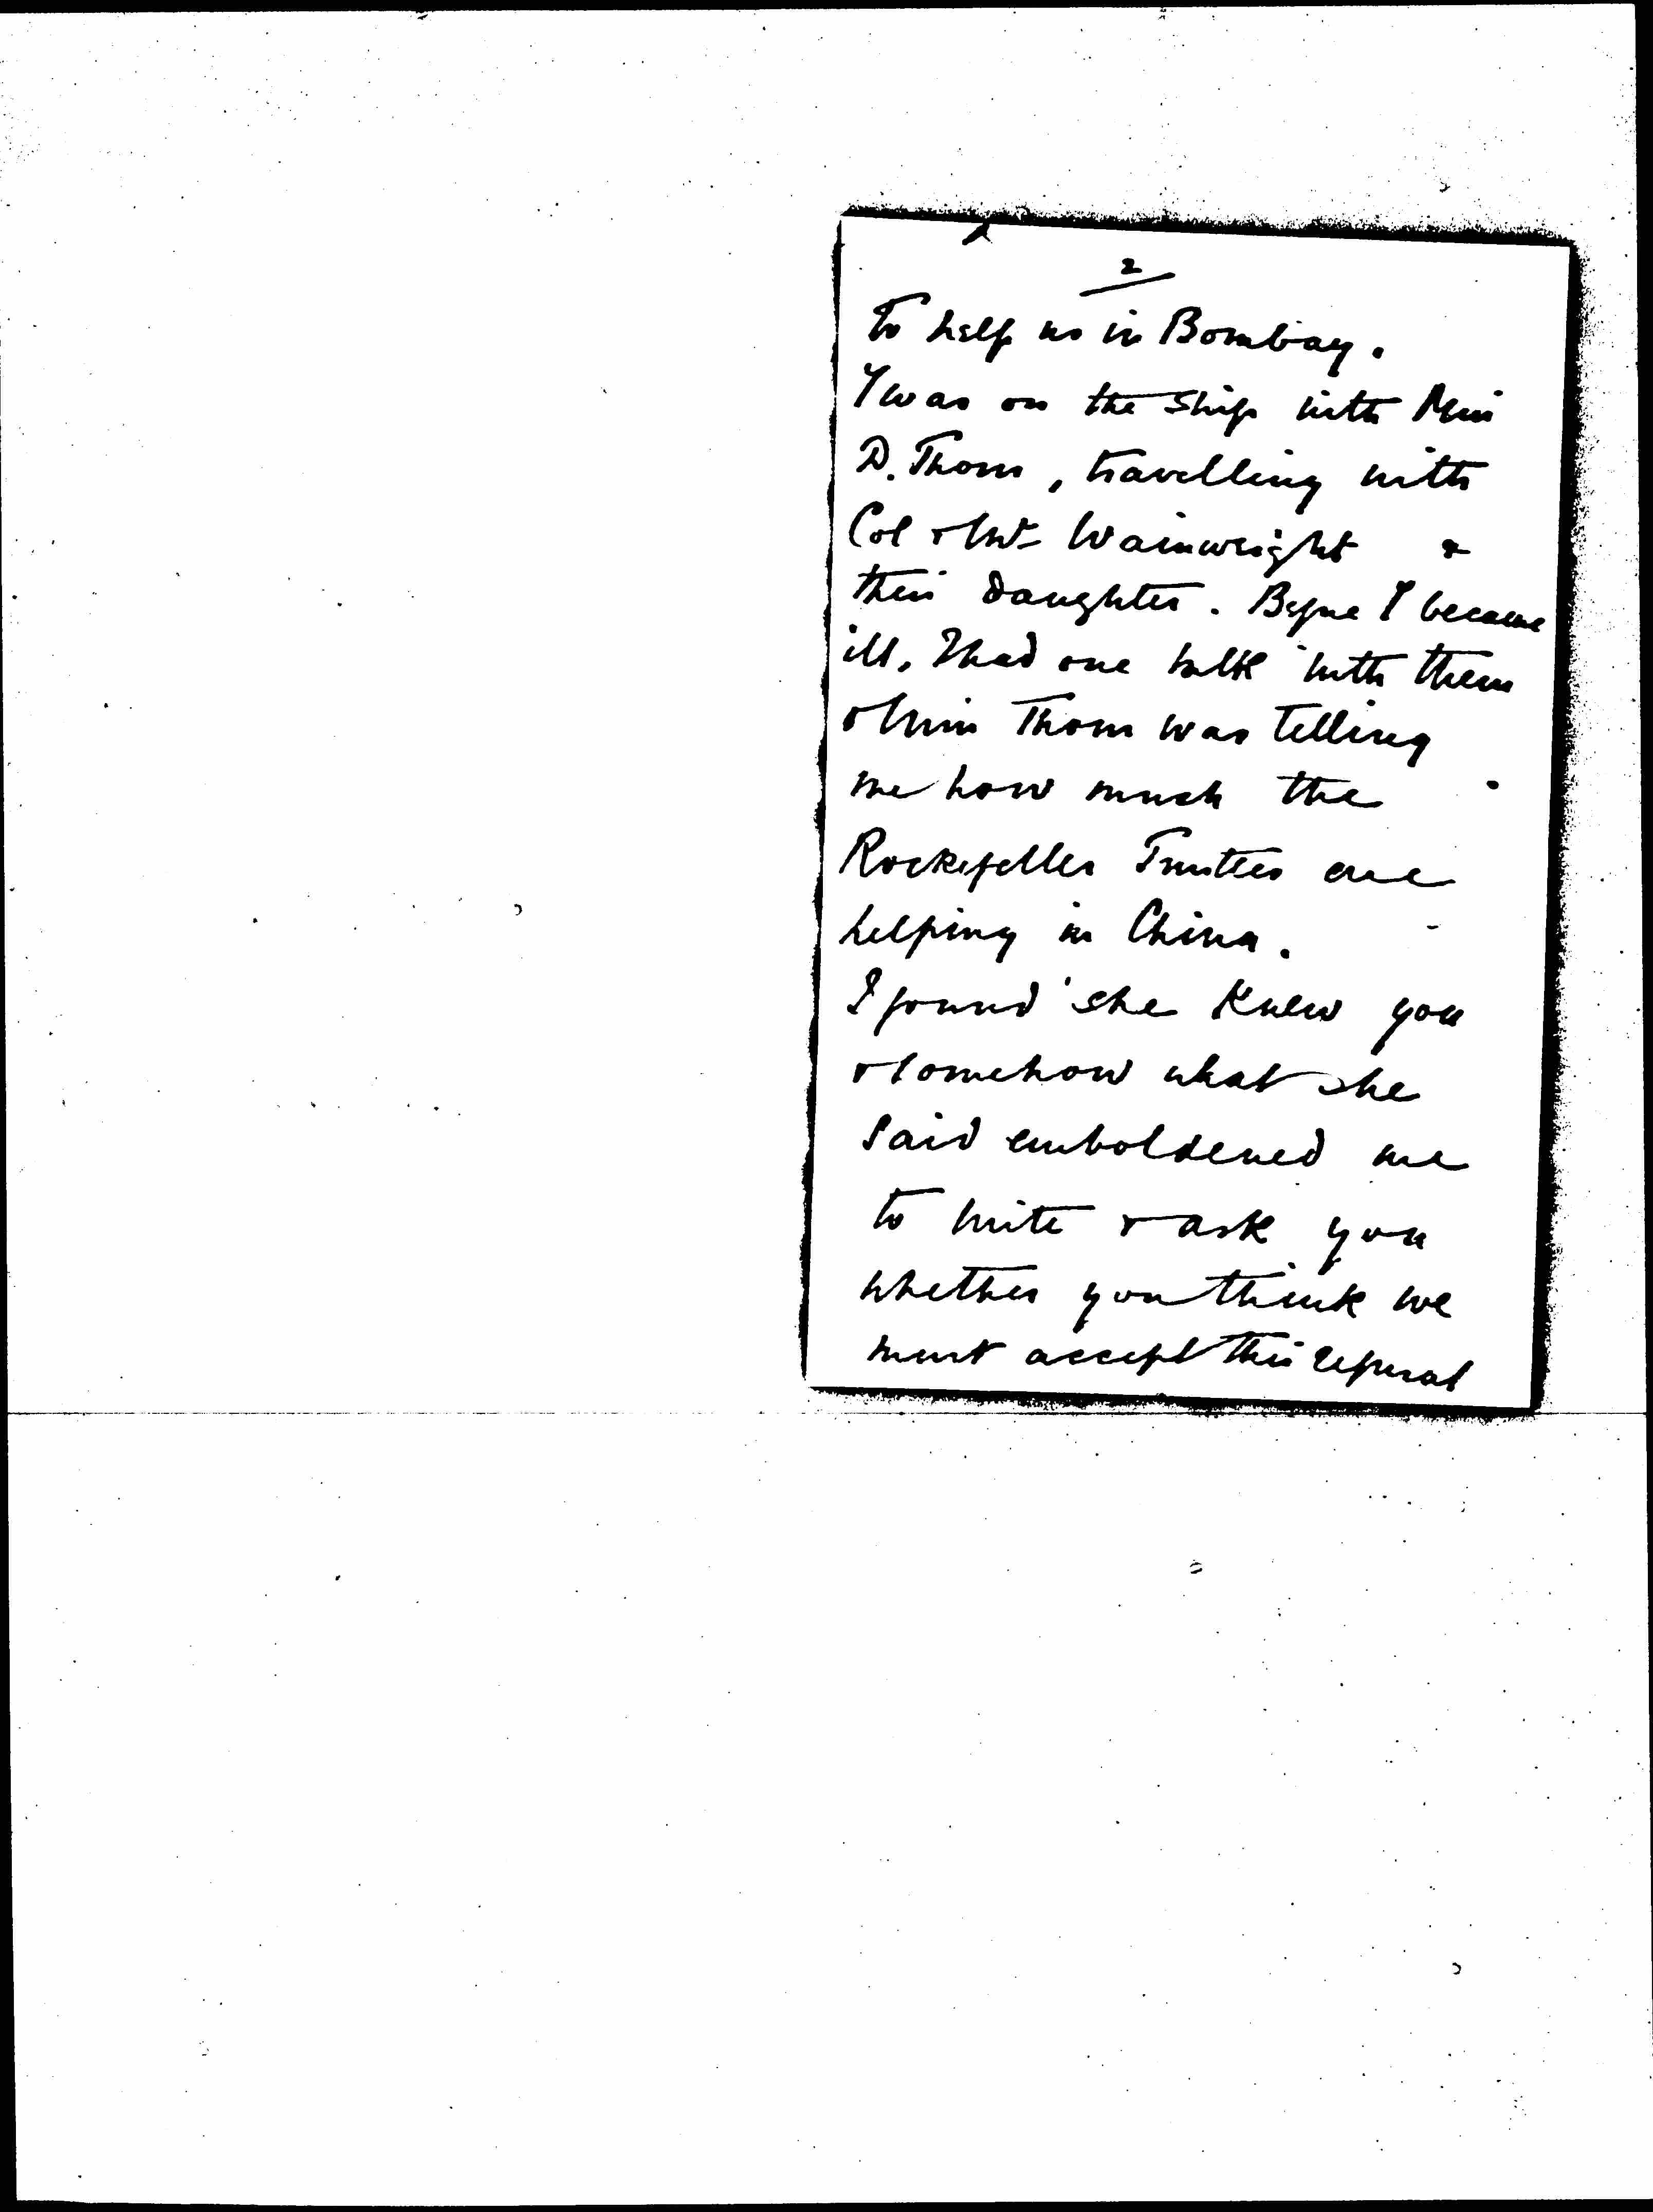 2
to help us in Bombay.
I was on the ship with Miss
D. Thom, travelling with
Col & Mrs Wainwright &
their daughter. Before I became
ill, I had one talk with them
& Miss Thom was telling
me how much the
Rockefeller Trustees are
helping in China.
I found she knew you
& somehow what she
said emboldened me
to write & ask you
whether you think we
must accept this refusal